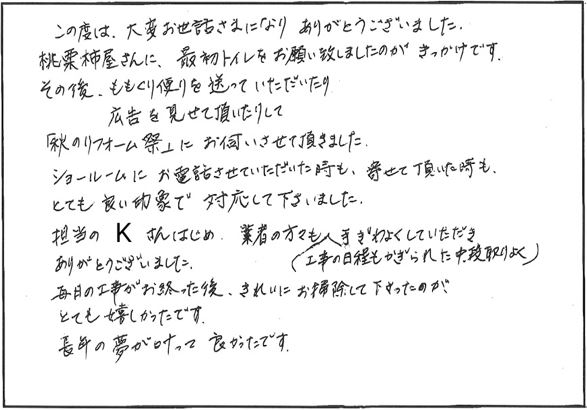 この度は、大変お世話さまになり ありがとうございました.
桃栗柿屋さんに、最初トイレをお願い致しましたのが きっかけです.
その後、ももくり便りを送っていただいたり
広告を見せて頂いたりして
「秋のリフォーム祭」に お伺いさせて頂きました.
ショールームに お電話させていただいた時も、寄せて頂いた時も、
とても良い印象で 対応して下さいました.
担当の K さんはじめ、業者の方々も手ぎわよくしていただき
(工事の日程もかぎられた中段取りよく)
ありがとうございました.
毎日の工事がお終った後、きれいにお掃除して下さったのが
とても嬉しかったです.
長年の夢が叶って 良かったです.